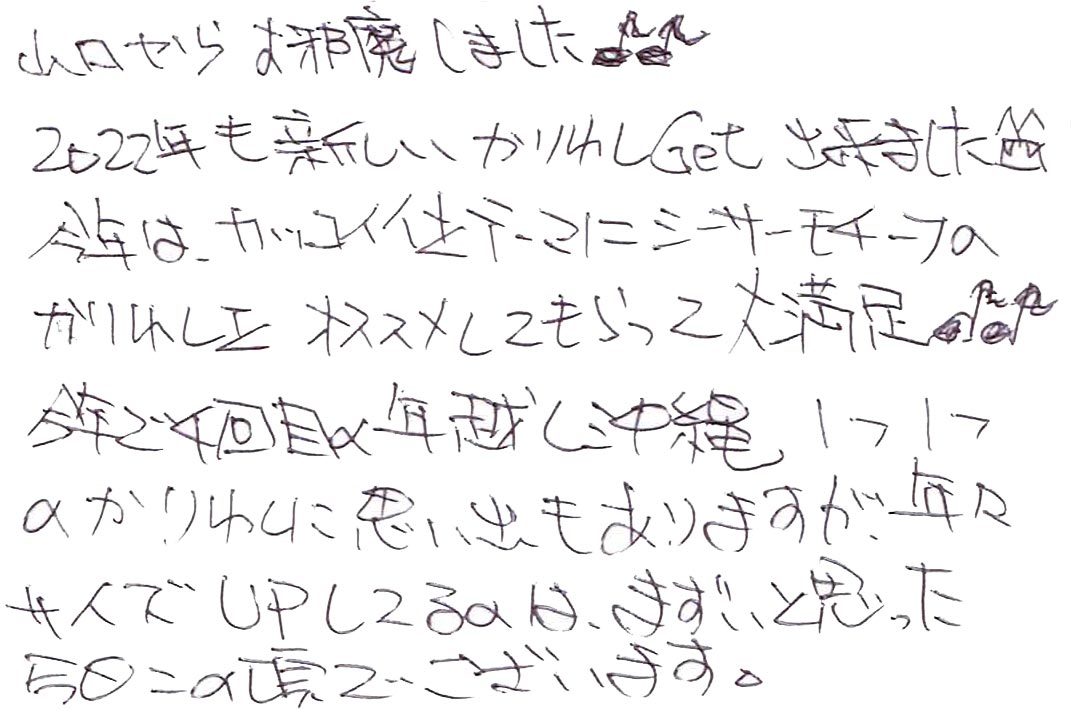 山口からお邪魔しました♫♫
2022年も新しいかりゆしGet出来ました
今年は、カッコイイ仕テーマにシーサーモチーフの
かりゆしをオススメしてもらって大満足♫♫
今年で4回目の年越し沖縄 1つ1つ
のかりゆしに思い出もありますが、年々
サイズUPしてるのは、まずいと思った
今日この頃でございます。